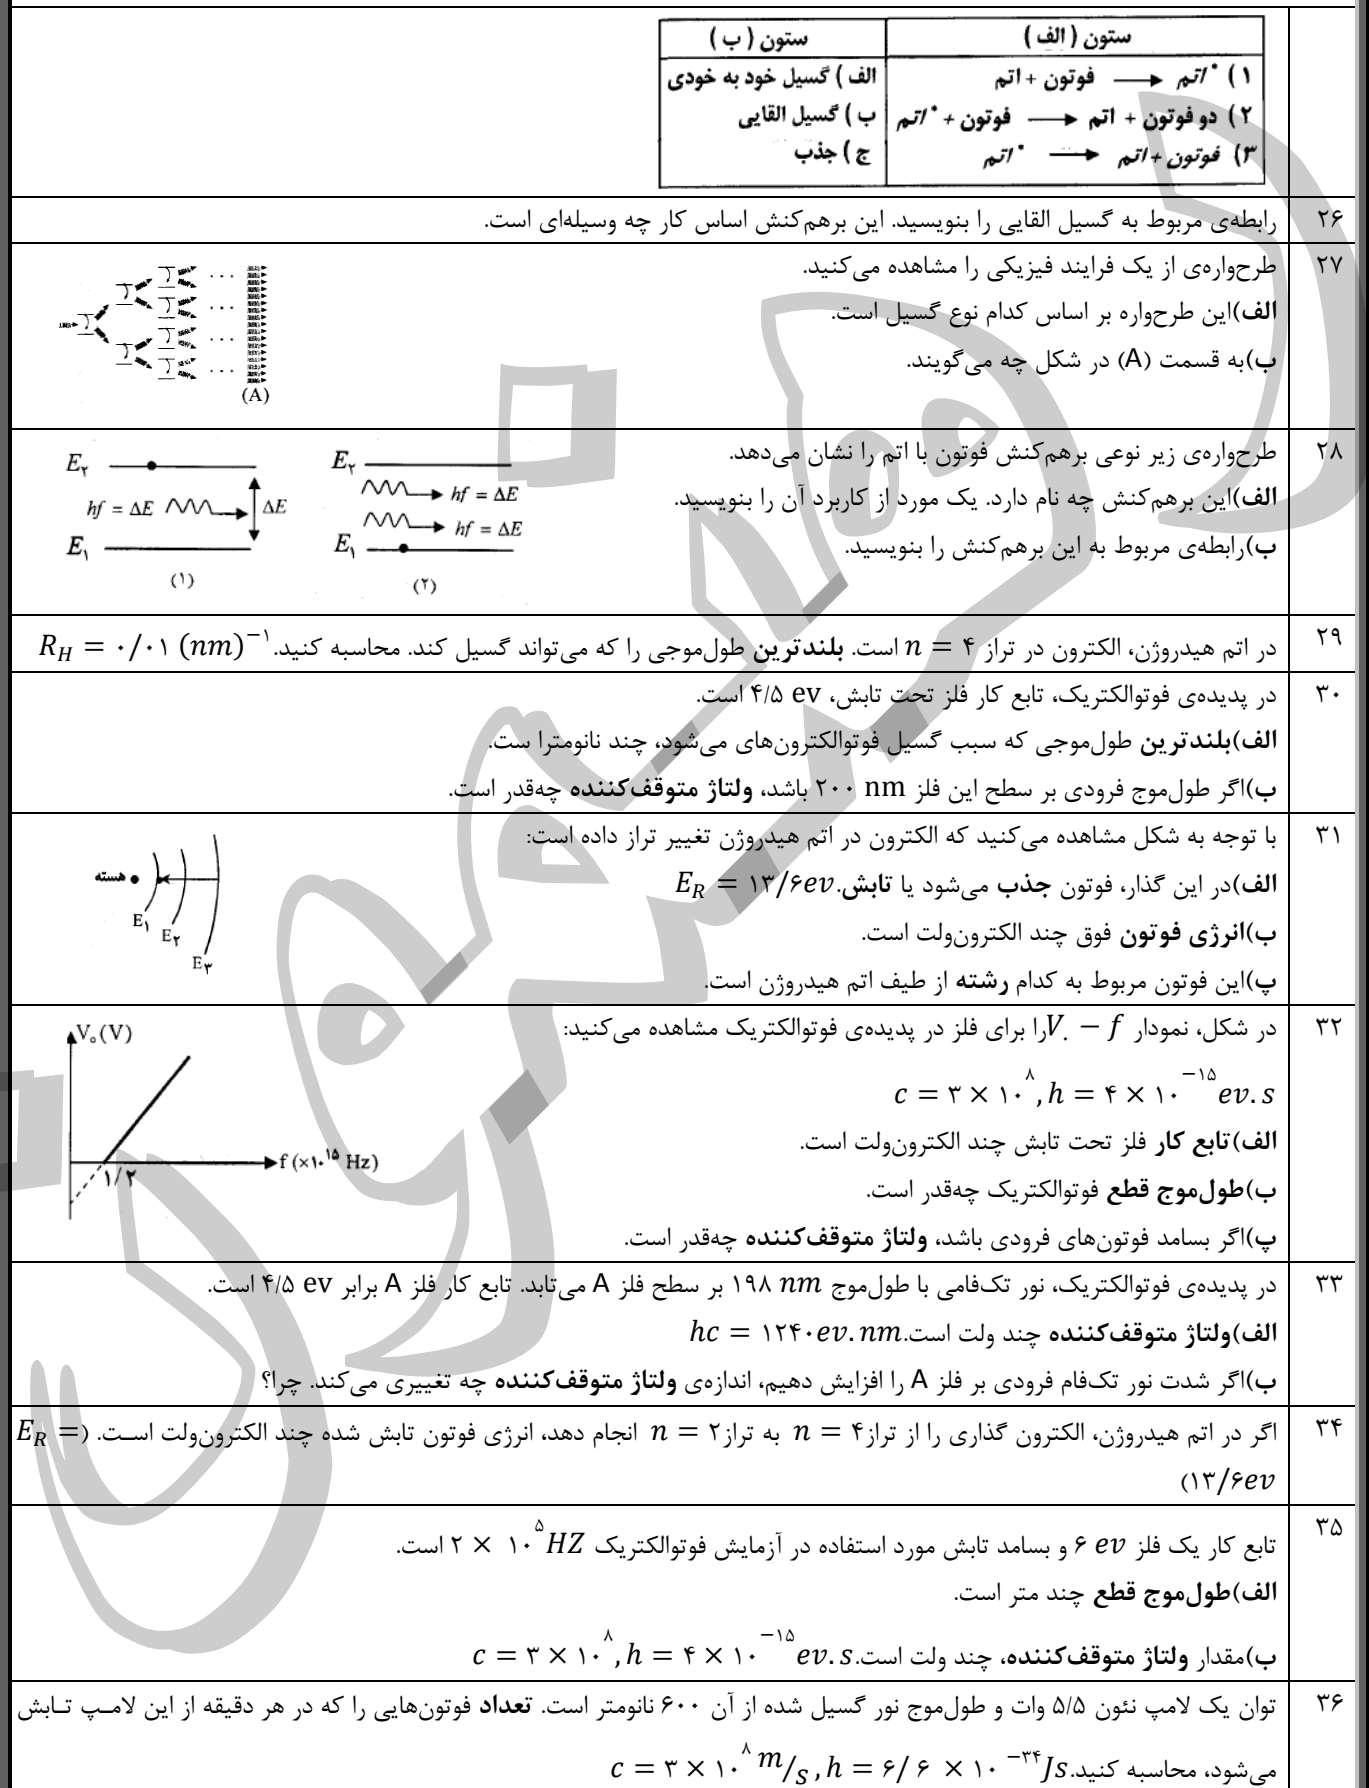 ستون ( الف )	ستون ( ب )
۱ ) *اتم ⟶ فوتون + اتم	الف ) گسیل خود به خودی
۲ ) دو فوتون + اتم ⟶ فوتون + *اتم	ب ) گسیل القایی
۳) فوتون + اتم ⟶ *اتم	ج ) جذب
۲۶ رابطه‌ی مربوط به گسیل القایی را بنویسید. این برهم‌کنش اساس کار چه وسیله‌ای است.
۲۷ طرح‌واره‌ی از یک فرایند فیزیکی را مشاهده می‌کنید.
الف)این طرح‌واره بر اساس کدام نوع گسیل است.
ب)به قسمت (A) در شکل چه می‌گویند.
(A)
۲۸ طرح‌واره‌ی زیر نوعی برهم‌کنش فوتون با اتم را نشان می‌دهد.
الف)این برهم‌کنش چه نام دارد. یک مورد از کاربرد آن را بنویسید.
ب)رابطه‌ی مربوط به این برهم‌کنش را بنویسید.
E۲
hf = ΔE
ΔE
E۱
(۱)
E۲
hf = ΔE
hf = ΔE
E۱
(۲)
۲۹ در اتم هیدروژن، الکترون در تراز n = ۴ است. بلندترین طول‌موجی را که می‌تواند گسیل کند. محاسبه کنید. R_H = ۰/۰۱ (nm)⁻¹
۳۰ در پدیده‌ی فوتوالکتریک، تابع کار فلز تحت تابش، ۴/۵ ev است.
الف)بلندترین طول‌موجی که سبب گسیل فوتوالکترون‌های می‌شود، چند نانومترا ست.
ب)اگر طول‌موج فرودی بر سطح این فلز ۲۰۰ nm باشد، ولتاژ متوقف‌کننده چه‌قدر است.
۳۱ با توجه به شکل مشاهده می‌کنید که الکترون در اتم هیدروژن تغییر تراز داده است:
الف)در این گذار، فوتون جذب می‌شود یا تابش. E_R = ۱۳/۶ev
ب)انرژی فوتون فوق چند الکترون‌ولت است.
پ)این فوتون مربوط به کدام رشته از طیف اتم هیدروژن است.
هسته
E۱
E۲
E۳
۳۲ در شکل، نمودار V۰ − f را برای فلز در پدیده‌ی فوتوالکتریک مشاهده می‌کنید:
c = ۳ × ۱۰^۸ , h = ۴ × ۱۰^−۱۵ ev.s
الف)تابع کار فلز تحت تابش چند الکترون‌ولت است.
ب)طول‌موج قطع فوتوالکتریک چه‌قدر است.
پ)اگر بسامد فوتون‌های فرودی باشد، ولتاژ متوقف‌کننده چه‌قدر است.
V₀(V)
f (×۱۰^۱۵ Hz)
۱/۲
۳۳ در پدیده‌ی فوتوالکتریک، نور تک‌فامی با طول‌موج ۱۹۸ nm بر سطح فلز A می‌تابد. تابع کار فلز A برابر ۴/۵ ev است.
الف)ولتاژ متوقف‌کننده چند ولت است. hc = ۱۲۴۰ev.nm
ب)اگر شدت نور تک‌فام فرودی بر فلز A را افزایش دهیم، اندازه‌ی ولتاژ متوقف‌کننده چه تغییری می‌کند. چرا؟
۳۴ اگر در اتم هیدروژن، الکترون گذاری را از تراز n = ۴ به تراز n = ۲ انجام دهد، انرژی فوتون تابش شده چند الکترون‌ولت است. (E_R =
۱۳/۶ev)
۳۵ تابع کار یک فلز ۶ ev و بسامد تابش مورد استفاده در آزمایش فوتوالکتریک ۲ × ۱۰^۵ HZ است.
الف)طول‌موج قطع چند متر است.
ب)مقدار ولتاژ متوقف‌کننده، چند ولت است. c = ۳ × ۱۰^۸ , h = ۴ × ۱۰^−۱۵ ev.s
۳۶ توان یک لامپ نئون ۵/۵ وات و طول‌موج نور گسیل شده از آن ۶۰۰ نانومتر است. تعداد فوتون‌هایی را که در هر دقیقه از این لامپ تابش
می‌شود، محاسبه کنید. c = ۳ × ۱۰^۸ m/s , h = ۶/۶ × ۱۰^−۳۴ Js